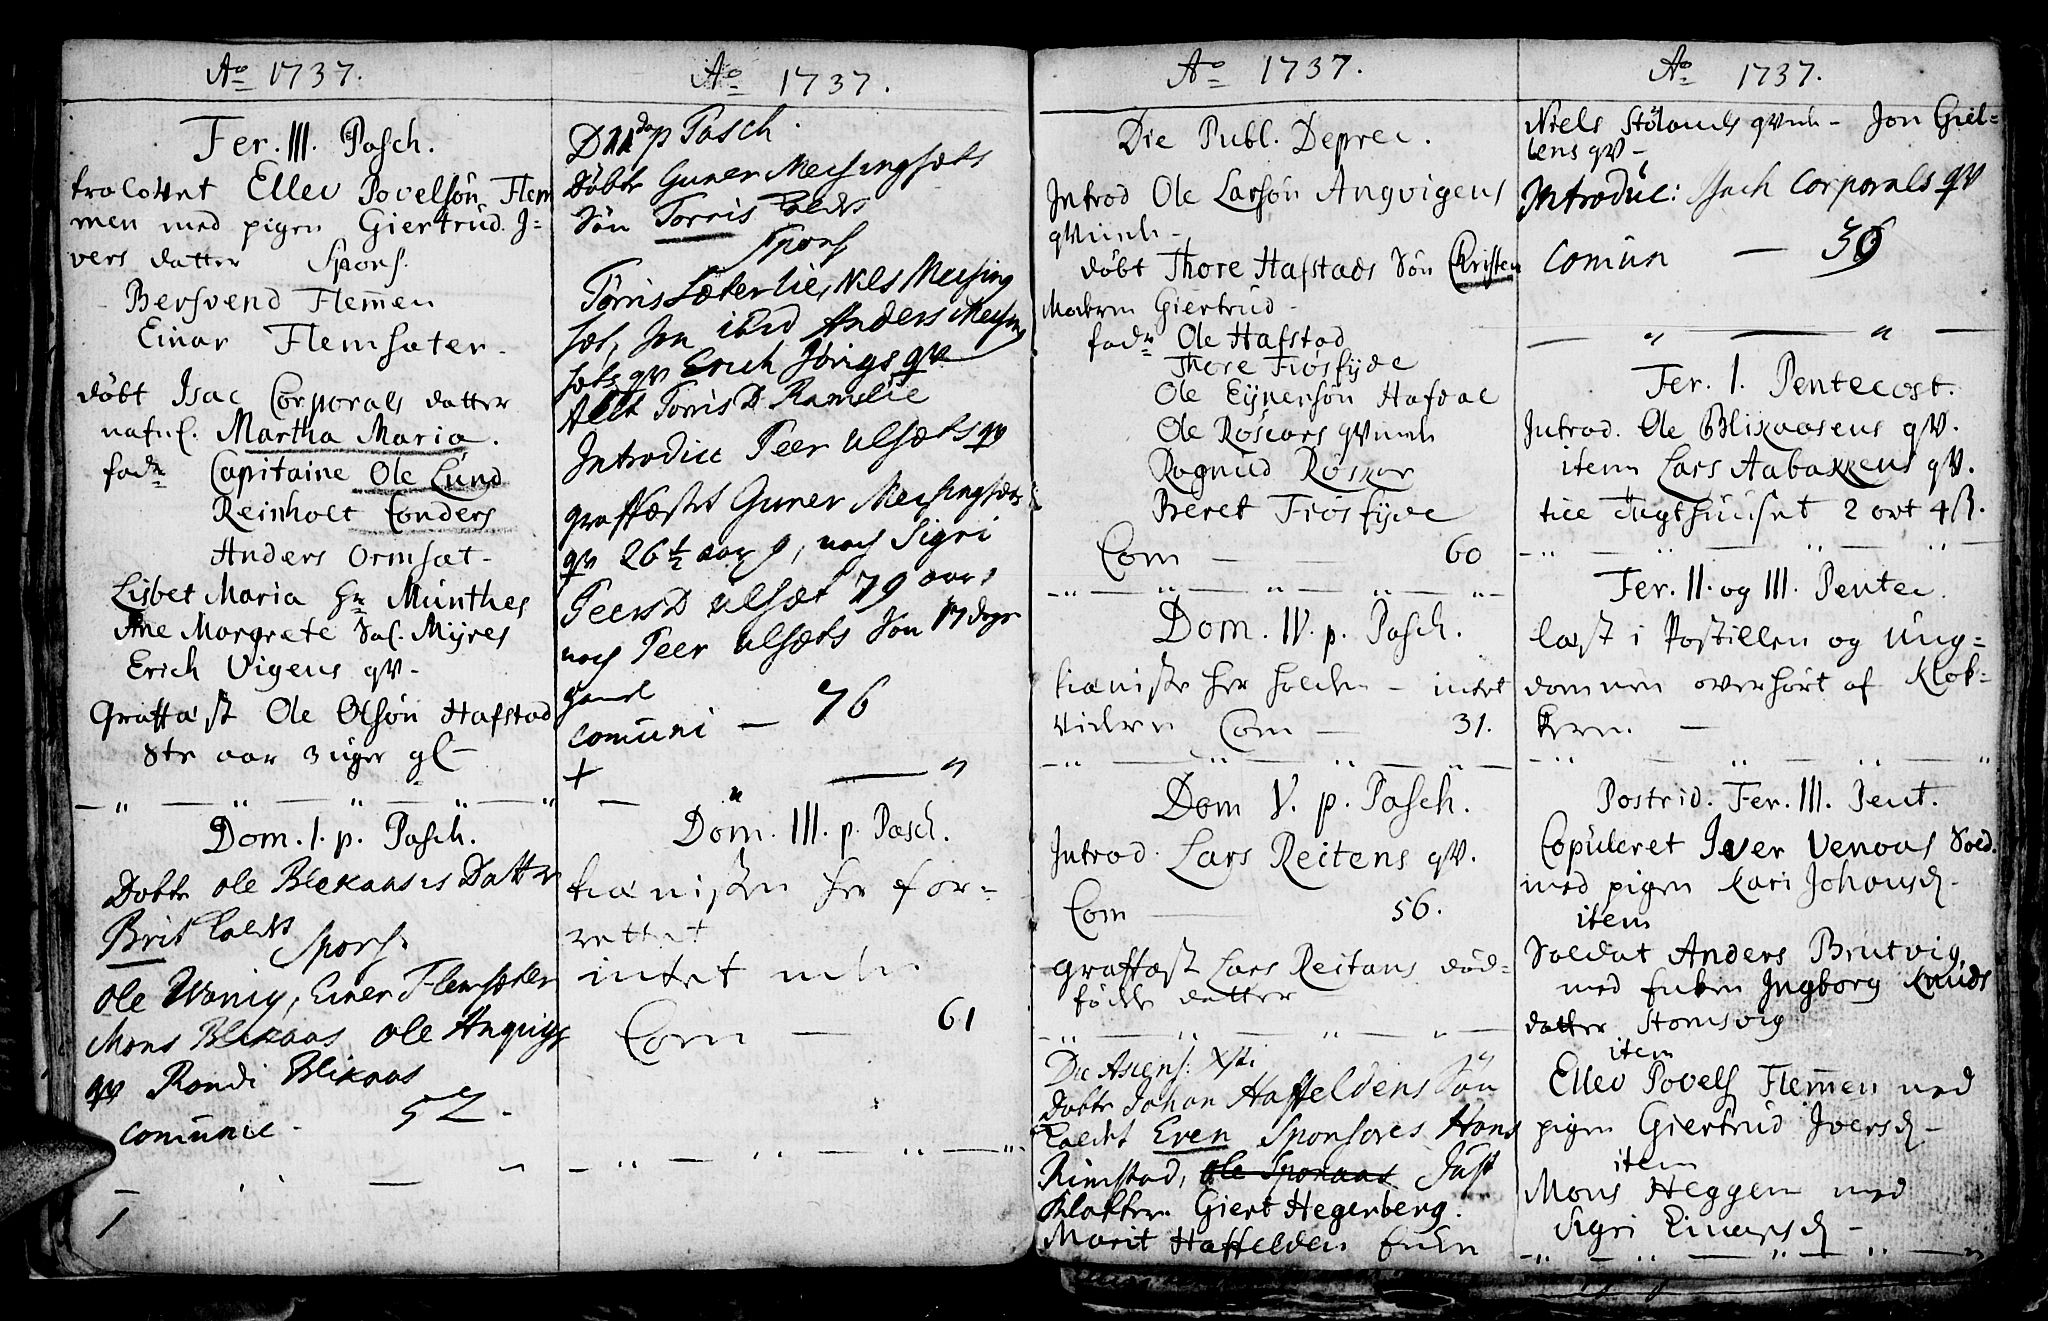 Ao 1737.
Fer. III. Pasch.
trolovet Ellev Povelsön Flem
men med pigen Giertrud I=
vers datter Spons.
Bersvend Flemen
Einar Flemsæter.
döbt Isac Corporals datter
nafnl. Martha Maria.
fadr Capitaine Ole Lund
Reinholt Conders
Anders Ormsæt-
Lisbet Maria Hr Münthes
Ane Margrete Sal. Myres
Erich Vigens qv-
Graffæst Ole Olsön Hafstad
aar 3 uger gl-
Dom. I. p. Pasch.
Döbte Ole Blekaases Datter
Brit kaldt
Spons.
Ole Wanig, Einer Flemsæter
Mons Blekaas Ole Angvigs
qv Randi Blikaas
comunic - 52-
1
Ao 1737.
D II da p Pasch.
döbte Guner Meisingsets
Sön Torris kaldt
Spons
Torris Sæterlie, Nils Meising
set, Jon ibid Anders Meising
sets qv Erich Jörigs qv
Torris D Ramslie
Introduc Peer Ulsæts qv
graffæstet Guner Meisingsæts
qv 26½ aar g, noch Sigri
PeersD Ulsæt 79 aar
noch Peer Ulsæts Sön 17 dage
gaml
comuni - 76
+
Dom. III. p. Pasch.
tienisten her for=
rettet
intet uden
Com - 61
Ao 1737.
Die Publ. Deprec.
Introd Ole Larsön Angvigens
qvinde-
döbt Thore Hafstads Sön Christen
Modren Giertrud-
fadr Ole Hafstad
Thore Fiösfyde
Ole Eynersön Hafdal
Ole Röskars qvinde
Rognild Röskar
Beret Fiösfyde
Com - 60
Dom. IV. p. Pasch.
tieniste her holden - intet
videre Com - 31.
Dom V. p. Pasch.
Introd. Lars Reitens qv.
Com - 56.
graffæst Lars Reitans död=
födde datter
Die Ascens: Xsti
Döbte Johan Haffeldens Sön
kaldt Even Sponsores Hans
Rimstad, Ole Sponaas Just
Klokker Giert Hegerberg.
Marit Haffelden Enken
Ao 1737.
Niels Stölands qvinde- Jon Giel=
lens qv-
Introduc: Isach Corporals qv
Comun - 36
Fer. I. Pentecost.
Introd. Ole Blikaasens qv.
item Lars Aabakkens qv.
til Tugthuuset 2 ort 4 ß.
Fer. II. og III. Pentec.
læst i Postillen og Ung=
dommen overhört af Klok=
keren. -
Postrid. Fer. III. Pent.
Copuleret Iver Venaas Sold.
med pigen Kari Johansd.
item
Soldat Anders Brutvig,
med Enken Ingborg Knuds
datter Stomsvig
item
Ellev Povels Flemen med
pigen Giertrud Iversd-
item
Mons Heggem med
Sigri Einarsd-